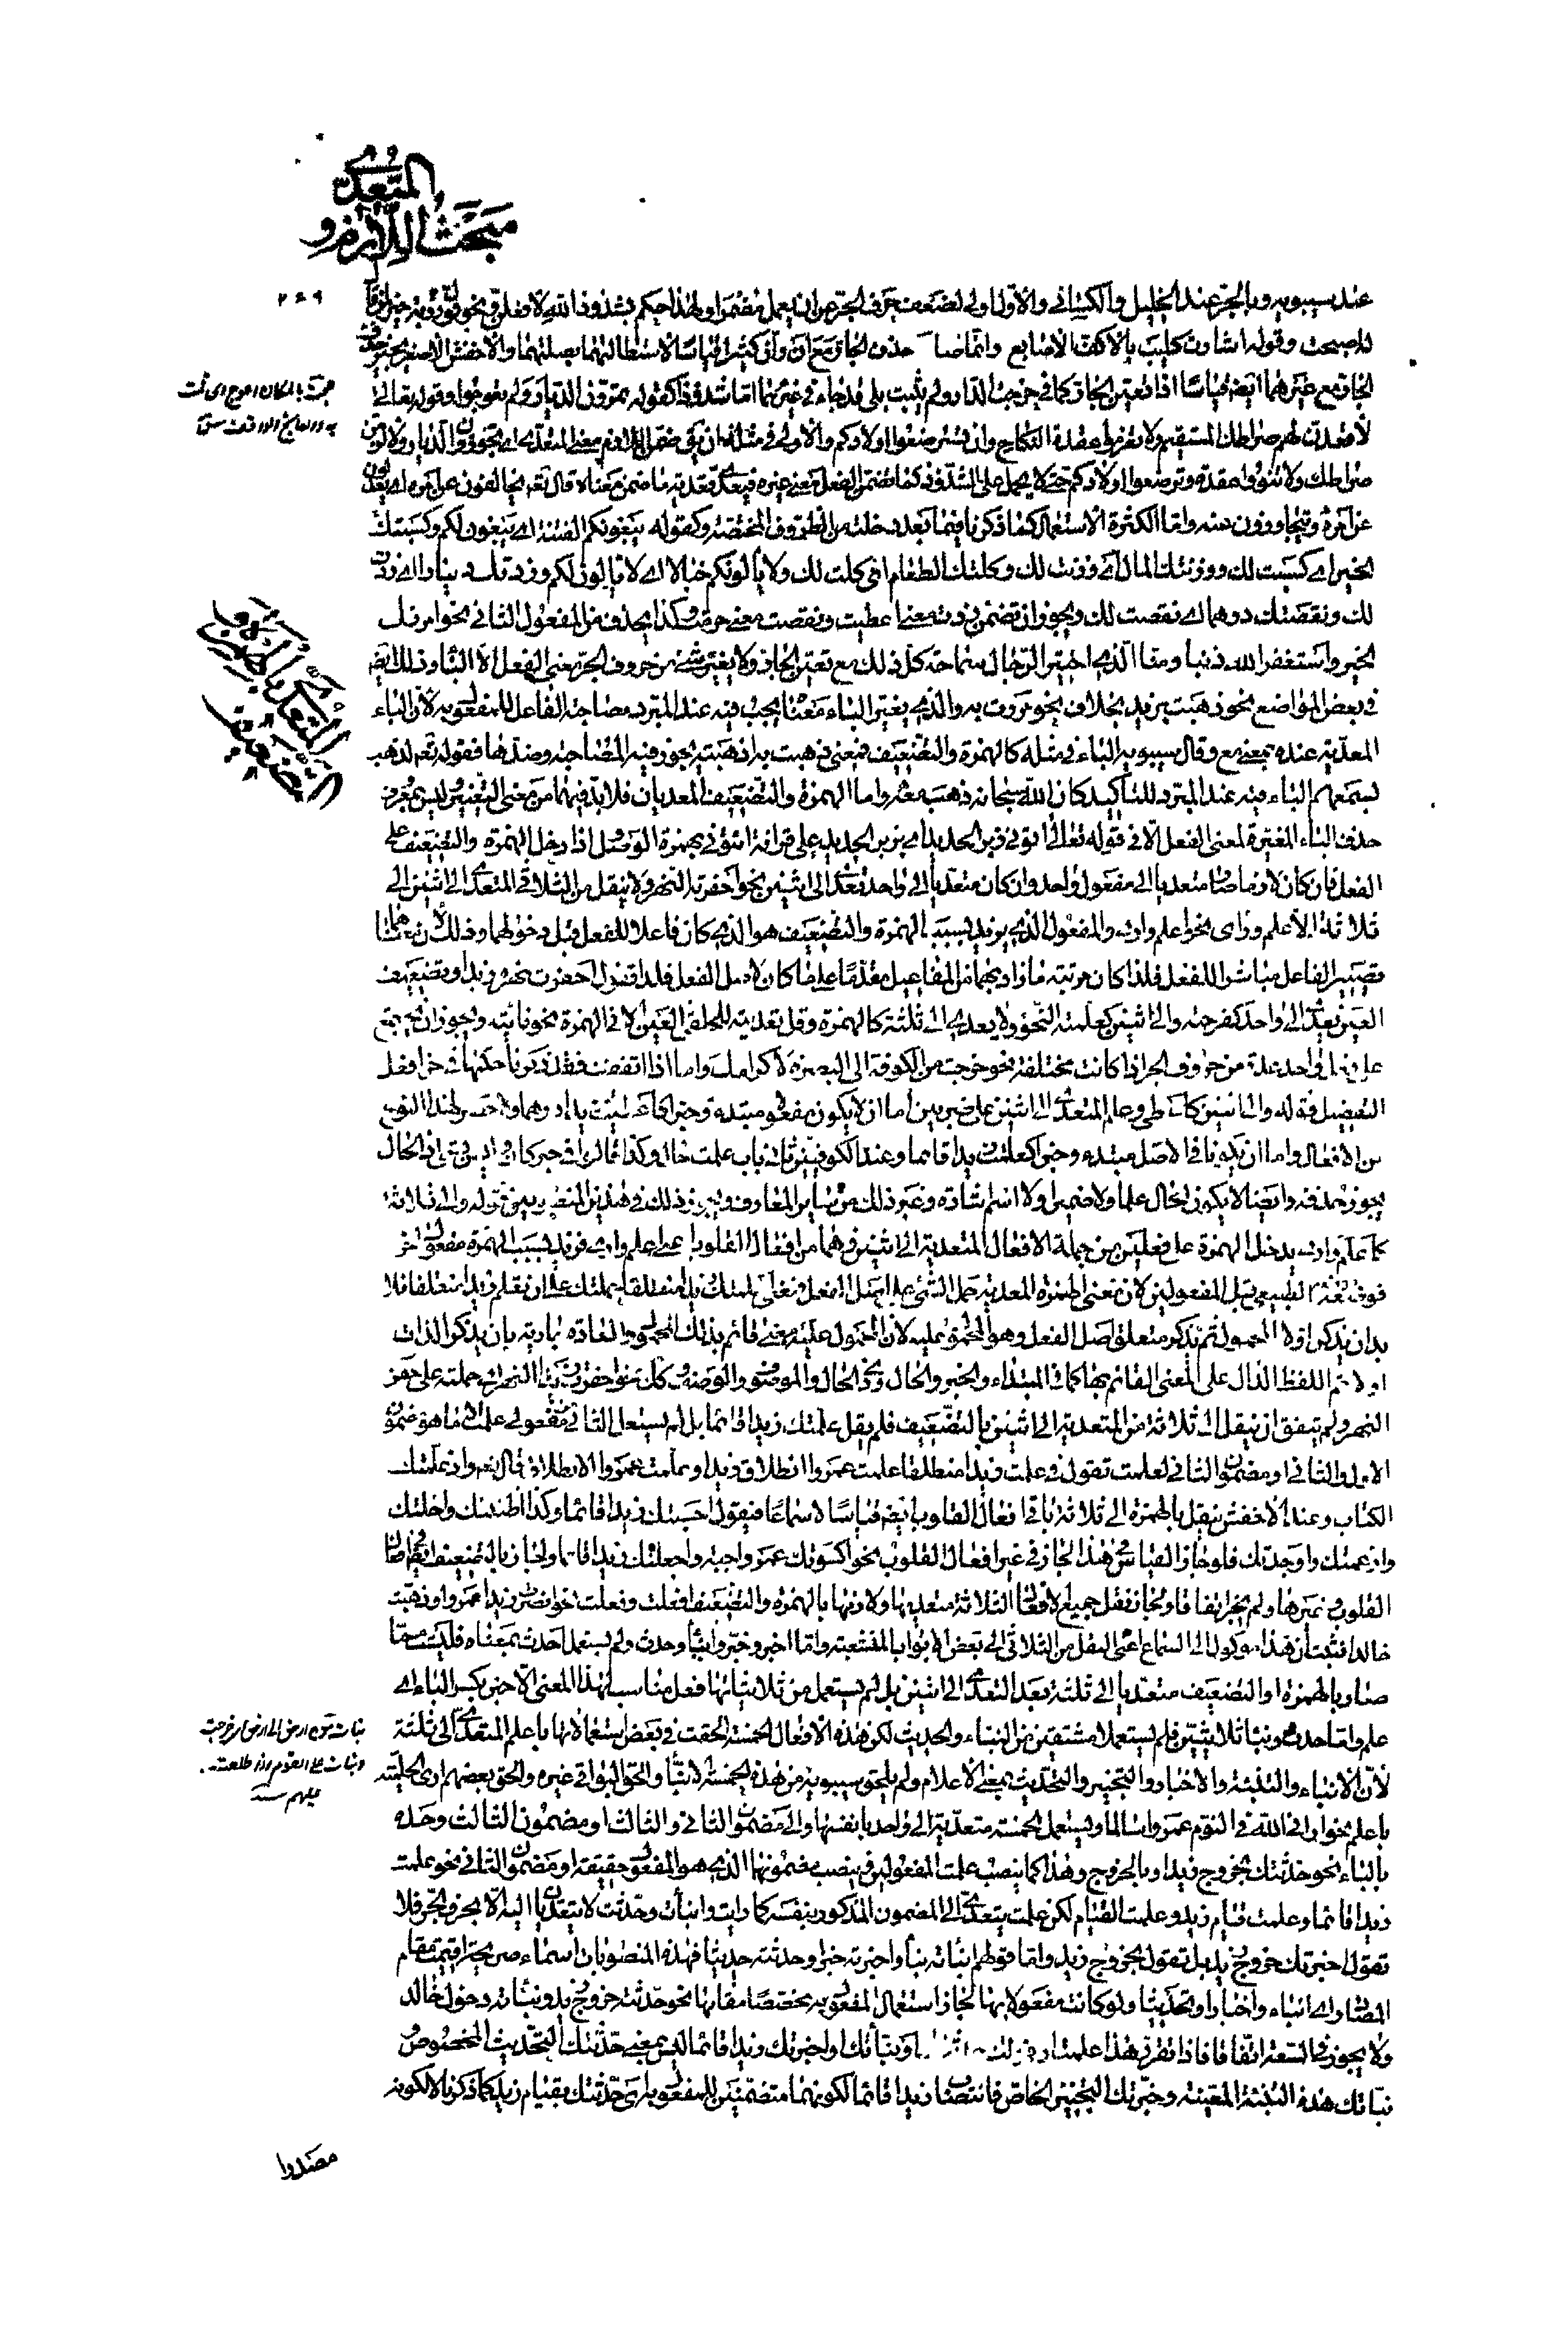 مبحث اللازم و
المتعدي
٢٦٩
عند سيبويه وبالجر عند الخليل والكسائي والأول اولى لضعف حرف الجر عن ان يعمل مضمرا ولهذا حكم بشذوذ الله لافعلن ونحو قول رؤبة خير لمن قال
له كيف اصبحت وقوله اشارت كليب بالاكف الاصابع وانما حذف الجار مع ان وأن كثيرا قياسا لاستطالتهما بصلتهما والاخفش الاصغر يجيز حذف
الجار مع غيرهما ايضا قياسا اذا تعين الجار كما في خرجت الدار ولم يثبت بلى قد جاء في غيرهما اما شذوذا كقوله تمرون الديار ولم تعوجوا وقوله تعالى
لأقعدن لهم صراطك المستقيم ولا تعزموا عقدة النكاح وان تسترضعوا اولادكم والاولى في مثله ان يقال ضمن اللازم معنى المتعدي اي تجوزون الديار ولالزمن
صراطك ولا تنووا عقدة وترضعوا اولادكم حتى لا يحمل على الشذوذ كما تضمن الفعل معنى غيره فيعدى تعدية ما ضمن معناه قال تعالى يخالفون عن امره اي يعدلون
عن امره ويتجاوزون عنه واما لكثرة الاستعمال كما ذكرنا فيما بعد دخلت من الظروف المختصة وكقوله يبغونكم الفتنة اي يبغون لكم وكسبتك
الخير اي كسبت لك ووزنتك المال اي وزنت لك وكلتك الطعام اي كلت لك ولا يألونكم خبالا اي لا يألون لكم وزدتك دينارا اي زدت
لك ونقصتك درهما اي نقصت لك ويجوز ان تضمن زدت معنى اعطيت ونقصت معنى حرمت وكذا يحذف من المفعول الثاني نحو امرتك
الخير واستغفر الله ذنبا ومنا الذي اختير الرجال سماحة كل ذلك مع تعين الجار ولا يغير شيء من حروف الجر معنى الفعل الا الباء وذلك ايضا
في بعض المواضع نحو ذهبت بزيد بخلاف نحو مررت به والذي يغير الباء معناه يجب فيه عند المبرد مصاحبة الفاعل للمفعول به لأن الباء
المعدية عنده بمعنى مع وقال سيبويه الباء في مثله كالهمزة والتضعيف فمعنى ذهبت به اذهبته يجوز فيه المصاحبة وضدها فقوله تعالى لذهب
بسمعهم الباء فيه عند المبرد للتأكيد كأن الله سبحانه ذهب معه واما الهمزة والتضعيف المعديان فلا بد فيهما من معنى التغيير وليس يجوز
حذف الباء المغيرة لمعنى الفعل الا في قوله تعالى آتوني زبر الحديد اي بزبر الحديد على قراءة ائتوني بهمزة الوصل اذا دخل الهمزة والتضعيف على
الفعل فان كان لازما صار متعديا الى مفعول واحد وان كان متعديا الى واحد تعدى الى اثنين نحو احفرته النهر ولا ينقل من الثلاثي المتعدي الى اثنين الى
ثلاثة الا علم ورأى نحو اعلم وارى والمفعول الذي يزيد بسبب الهمزة والتضعيف هو الذي كان فاعلا للفعل قبل دخولهما وذلك لأن معناهما
تصيير الفاعل مباشرا للفعل فلذا كان مرتبة ما زاد بهما من المفاعيل مقدما على ما كان لاصل الفعل فلذا تقول احفرت نهره زيدا وتضعيف
العين يعدي الى واحد كفرحته والى اثنين كعلمته النحو ولا يعدي الى ثلثة كالهمزة وقل تعدية للحلقي العين الا في الهمزة نحو نأيته ويجوز ان يجتمع
على فعل واحد عدة من حروف الجر اذا كانت مختلفة نحو خرجت من الكوفة الى البصرة لاكرامك واما اذا اتفقت فقد ذكرنا حكمها في خر افعل
التفضيل قوله والى اثنين كاعطى وعلم المتعدي الى اثنين على ضربين اما ان لا يكون مفعولاه مبتدء وخبرا كاعطيت زيدا درهما ولا حصر لهذا النوع
من الافعال واما ان يكونا في الاصل مبتدء وخبرا كعلمت زيدا قائما وعند الكوفيين ثاني باب علمت حال
يجوز حذفه وايضا لا يكون الحال علما ولا ضميرا ولا اسم اشارة وغير ذلك من ساير المعارف ويجوز ذلك في هذين المنصوبين قوله والى ثلاثة
كاعلم وارى يدخل الهمزة على فعلين من جملة الافعال المتعدية الى اثنين وهما من افعال القلوب اعني اعلم وارى فزيد بسبب الهمزة مفعول آخر
بد ان يذكر اولا المحمول ثم يذكر متعلق اصل الفعل وهو المحمول عليه لأن المحمول عليه معنى قائم بذلك المحمول والعادة جارية بان يذكر الذات
اولا ثم اللفظ الدال على المعنى القائم بها كما في المبتداء والخبر والحال وذي الحال والموصوف والوصف وكذا نحو احفرت زيدا النهر اي حملته على حفر
النهر ولم يتفق ان ينقل الى ثلاثة من المتعدية الى اثنين بالتضعيف فلم يقل علمتك زيدا قائما بل لم يستعمل الثاني من مفعولي علمت الا ما هو مضمون
الاول والثاني او مضمون الثاني لعلمت تقول في علمت زيدا منطلقا علمت عمروا انطلاق زيد او علمت عمروا الانطلاق قال تعالى واذ علمتك
الكتاب وعند الاخفش ينقل بالهمزة الى ثلاثة باقي افعال القلوب ايضا قياسا لا سماعا فيقول احسبتك زيدا قائما وكذا اظننتك واخلتك
وازعمتك واوجدتك فلو جاز القياس في هذا لجاز في غير افعال القلوب نحو اكسوتك عمروا جبة واجعلتك زيدا قائما ولجاز بالتضعيف ايضا في
القلوب وغيرها ولم يجز اتفاقا ولجاز نقل جميع الافعال الثلاثة متعديها ولازمها بالهمزة والتضعيف افعلت وفعلت نحو انصرت زيدا عمروا وذهبت
خالدا فثبت ان هذا موكول الى السماع اعني النقل من الثلاثي الى بعض الابواب المتشعبة واما اخبر وخبر وانبأ وحدث ولم يستعمل احدث بمعناه فليست مما
صار بالهمزة او التضعيف متعديا الى ثلثة بعد التعدي الى اثنين بل لم يستعمل من ثلاثياتها فعل مناسب لهذا المعنى الا خبر بكسر الباء اي
علم واما حدث ونبأ ثلاثيتين فلم تستعملا مشتقين من النباء والحديث لكن هذه الافعال الخمسة الحقت في بعض استعمالاتها باعلم المتعدي الى ثلثة
لأن الانباء والتنبئة والاخبار والتخبير والتحديث بمعنى الاعلام ولم يلحق سيبويه من هذه الخمسة الا نبأ والحق البواقي غيره والحق بعضهم ارى الحلمية
باعلم نحو اراني الله في النوم عمروا سالما ويستعمل الخمسة متعدية الى واحد بانفسها والى مضمون الثاني والثالث او مضمون الثالث وحده
بالباء نحو حدثتك بخروج زيد او بالخروج وهذا كما ينصب علمت المفعولين فينصب مضمونهما الذي هو المفعول حقيقة او مضمون الثاني نحو علمت
زيدا قائما وعلمت قيام زيد وعلمت القيام لكن علمت يتعدى الى المضمون المذكور بنفسه كما رأيت وانبأت وحدثت لا يتعديان اليه الا بحرف الجر فلا
تقول اخبرتك خروج زيد بل تقول بخروج زيد واما قولهم انبأته نبأ واخبرته خبرا وحدثته حديثا فهذه المنصوبات اسماء صريحة اقيمت مقام
المصادر اي انباء واخبارا وتحديثا ولو كانت مفعولا بها لجاز استعمال المفعول به مختصا مقامها نحو حدثته خروج زيد ونبأته دخول خالد
ولا يجوز في السعة اتفاقا فاذا تقرر هذا علمت ان
نبأتك هذه التنبئة المعينة وخبرتك التخبير الخاص فانتصاب زيدا قائما لكونهما متضمنين للمفعول به اي حدثتك بقيام زيد كما ذكرنا لا لكونه
التعدي بالهمزة و
التضعيف
مصدرا